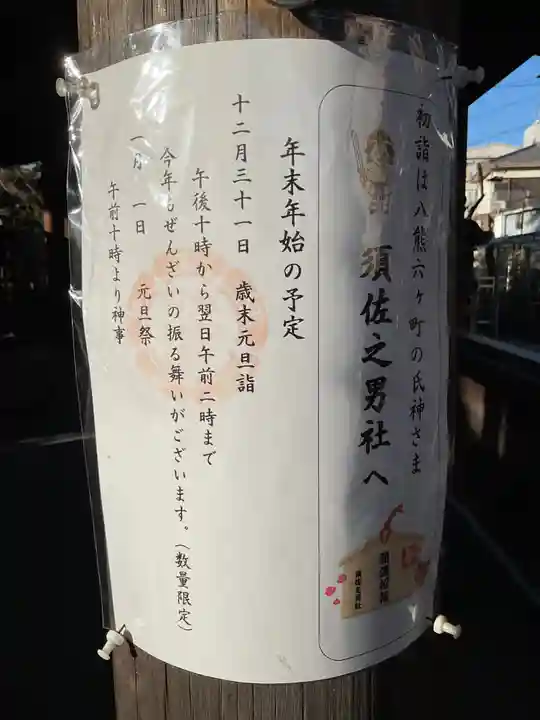 初詣は八熊六ヶ町の氏神さま
須佐之男社へ
開運招福
須佐之男社
年末年始の予定
十二月三十一日 歳末元旦詣
午後十時から翌日午前二時まで
今年もぜんざいの振る舞いがございます。(数量限定)
一月 一日 元旦祭
午前十時より神事